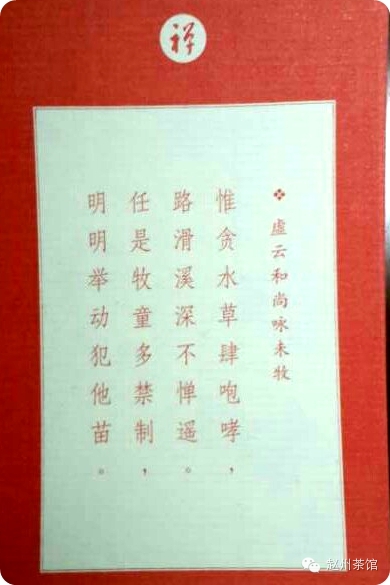 禅
❖虚云和尚咏未牧
惟贪水草肆咆哮，
路滑溪深不惮遥。
任是牧童多禁制，
明明举动犯他苗。
赵州茶馆